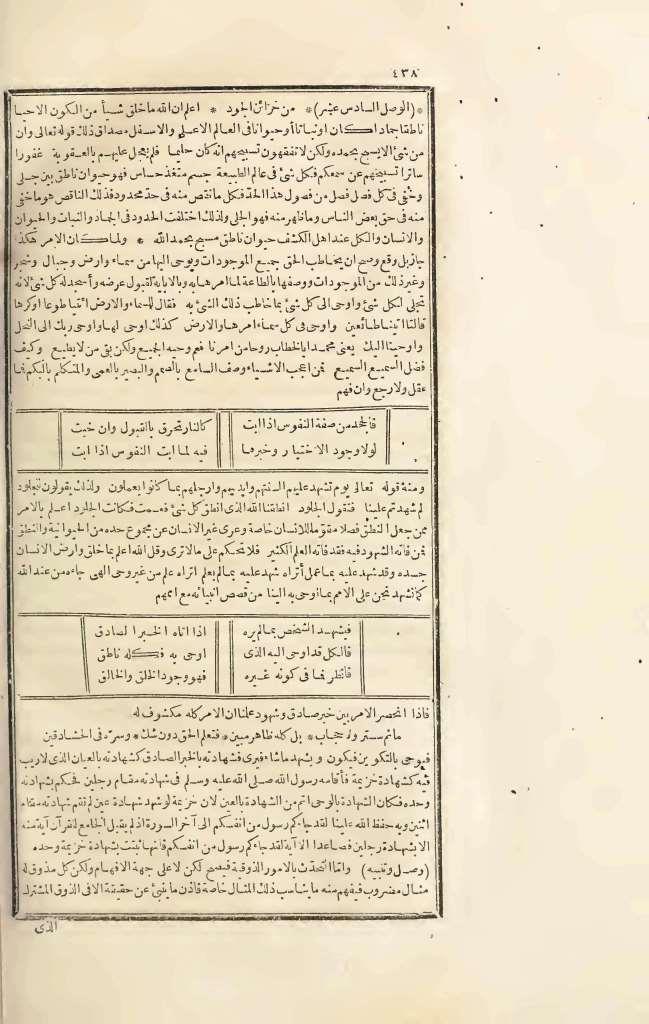 ٤٣٨
*(الوصل السادس عشر)* من خزائن الجود * اعلم ان الله ما خلق شيأ من الكون الا حيا
ناطقا جمادا كان او نباتا أو حيوانا فى العالم الاعلى والاسفل مصداق ذلك قوله تعالى وان
من شئ الا يسبح بحمده ولكن لا تفقهون تسبيحهم انه كان حليما فلم يعجل عليهم بالعقوبة غفورا
ساترا تسبيحهم عن سمعكم فكل شئ فى عالم الطبيعة جسم متغذ حساس فهو حيوان ناطق بين جلى
وخفى فى كل فصل فصل من فصول هذا الحد فكل ما نقص منه فى حد محدود فذلك الناقص هو ما خفى
منه فى حق بعض الناس وما ظهر منه فهو الجلى ولذلك اختلفت الحدود فى الجماد والنبات والحيوان
والانسان والكل عند اهل الكشف حيوان ناطق مسبح بحمد الله * ولما كان الامر هكذا
جاز بل وقع وصح ان يخاطب الحق جميع الموجودات ويوحى اليها من سماء وارض وجبال وشجر
وغير ذلك من الموجودات ووصفها بالطاعة لما امرها به وبالاباية لقبول عرضه وأسجد له كل شئ لانه
تجلى لكل شئ واوحى الى كل شئ بما خاطب ذلك الشئ به فقال للسماء والارض ائتيا طوعا او كرها
قالتا اتينا طائعين واوحى فى كل سماء امرها والارض كذلك اوحى لها واوحى ربك الى النحل
واوحينا اليك يعنى محمدا بالخطاب روحا من امرنا فعم وحيه الجميع ولكن بقى من لا يطيع وكيف
فضل السميع السميع فمن اعجب الاشياء وصف السامع بالصمم والبصير بالعمى والمتكلم بالبكم فما
عقل ولا رجع وان فهم
فالجحد من صفة النفوس اذا ابت كالنار تحرق بالقبول وان خبت
لولا وجود الاختيار وخبرها فيه لما ابت النفوس اذا ابت
ومنه قوله تعالى يوم تشهد عليهم السنتهم وايديهم وارجلهم بما كانوا يعملون ولذلك يقولون لجلودهم
لم شهدتم علينا فتقول الجلود انطقنا الله الذى انطق كل شئ فعمت فكانت الجلود اعلم بالامر
ممن جعل النطق فصلا مقوما للانسان خاصة وعرى غير الانسان عن مجموع حده من الحيوانية والنطق
فمن فاته الشهود فيه فقد فاته العلم الكثير فلا تحكم على مالا ترى وقل الله اعلم بما خلق وارض الانسان
جسده وقد شهد عليه بما عمل أتراه شهد عليه بما لم يعلم اتراه علم من غير وحى الهى جاءه من عند الله
كما نشهد نحن على الامم بما اوحى به الينا من قصص انبيائه مع اممهم
فيشهد الشخص بما لم يره اذا اتاه الخبر الصادق
فالكل قد اوحى اليه الذى اوحى به فكله ناطق
فانظر فما فى كونه غيره فهو وجود الخلق والخالق
فاذا انحصر الامر بين خبر صادق وشهود علمنا ان الامر كله مكشوف له
ما ثم ستر ولا حجاب * بل كله ظاهر مبين * فتعلم الحق دون شك * وسره فى الحشا دفين
فيوحى بالتكوين فيكون ويشهد ما شاء فيرى فشهادته بالخبر الصادق كشهادته بالعيان الذى لا ريب
فيه كشهادة خزيمة فأقامه رسول الله صلى الله عليه وسلم فى شهادته مقام رجلين فحكم بشهادته
وحده فكان الشهادة بالوحى اتم من الشهادة بالعين لان خزيمة لو شهد شهادة عين لم تقم شهادته مقام
اثنين وبه حفظ الله علينا لقد جاءكم رسول من انفسكم الى آخر السورة اذ لم يقبل الجامع للقرآن آية منه
الا بشهادة رجلين فصاعدا الا آية لقد جاءكم رسول من انفسكم فانها ثبتت بشهادة خزيمة وحده
(وصل وتنبيه) واما التحدث بالامور الذوقية فيصح لكن لا على جهة الافهام ولكن كل مذوق له
مثال مضروب فيفهم منه ما يناسب ذلك المثال خاصة فاذن ما ينبئ عن حقيقة الا فى الذوق المشترك
الذى